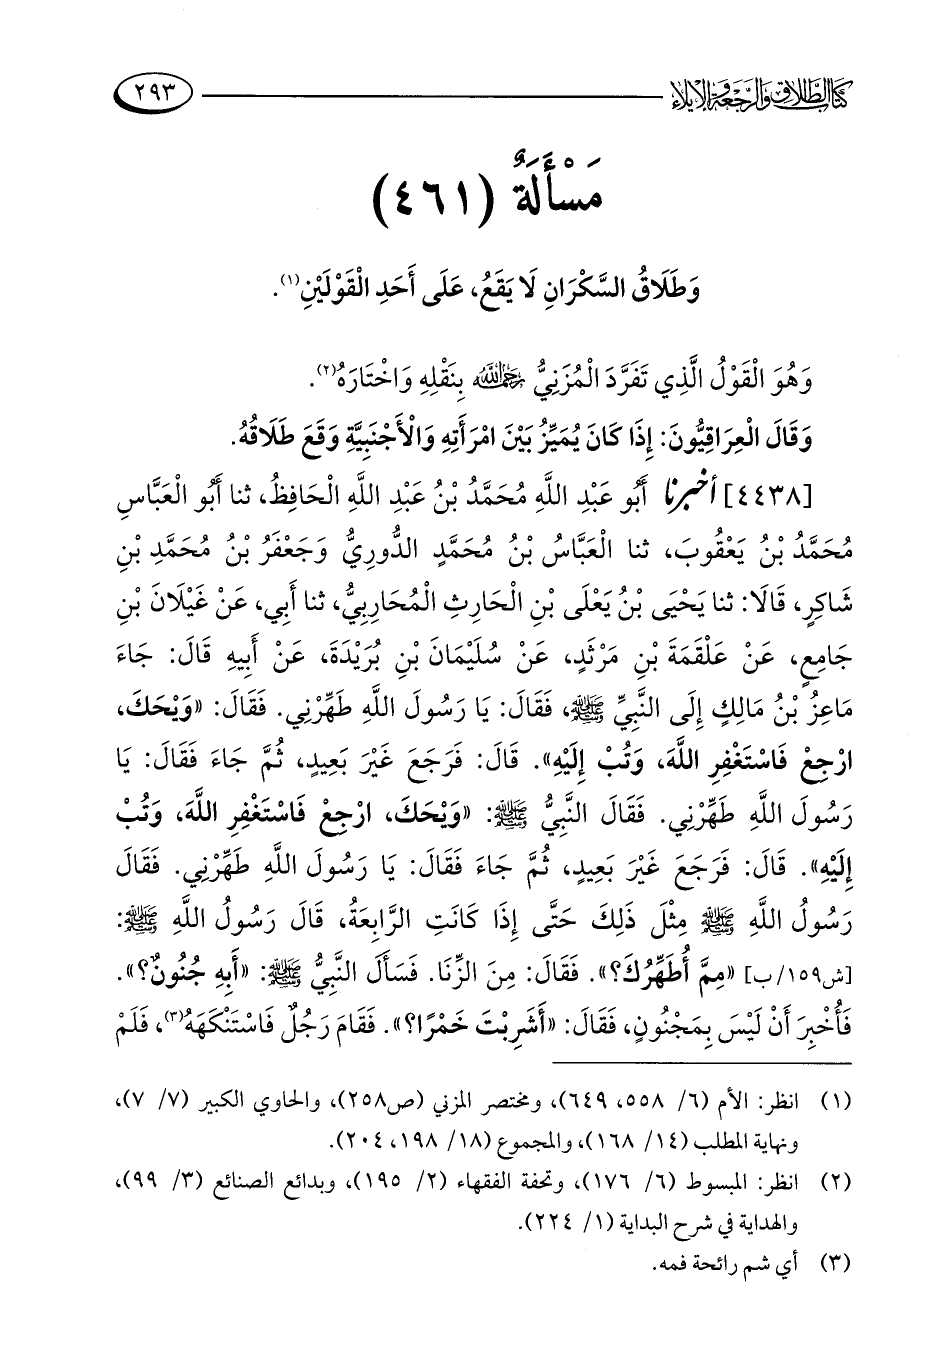 كتاب الطلاق والرجعة والإيلاء ٢٩٣
مَسْأَلَةٌ (٤٦١)
وَطَلَاقُ السَّكْرَانِ لَا يَقَعُ، عَلَى أَحَدِ الْقَوْلَيْنِ(١).
وَهُوَ الْقَوْلُ الَّذِي تَفَرَّدَ الْمُزَنِيُّ رَحِمَهُ اللَّهُ بِنَقْلِهِ وَاخْتَارَهُ(٢).
وَقَالَ الْعِرَاقِيُّونَ: إِذَا كَانَ يُمَيِّزُ بَيْنَ امْرَأَتِهِ وَالْأَجْنَبِيَّةِ وَقَعَ طَلَاقُهُ.
[٤٤٣٨] أخبرنا أَبُو عَبْدِ اللَّهِ مُحَمَّدُ بْنُ عَبْدِ اللَّهِ الْحَافِظُ، ثنا أَبُو الْعَبَّاسِ
مُحَمَّدُ بْنُ يَعْقُوبَ، ثنا الْعَبَّاسُ بْنُ مُحَمَّدٍ الدُّورِيُّ وَجَعْفَرُ بْنُ مُحَمَّدِ بْنِ
شَاكِرٍ، قَالَا: ثنا يَحْيَى بْنُ يَعْلَى بْنِ الْحَارِثِ الْمُحَارِبِيُّ، ثنا أَبِي، عَنْ غَيْلَانَ بْنِ
جَامِعٍ، عَنْ عَلْقَمَةَ بْنِ مَرْثَدٍ، عَنْ سُلَيْمَانَ بْنِ بُرَيْدَةَ، عَنْ أَبِيهِ قَالَ: جَاءَ
مَاعِزُ بْنُ مَالِكٍ إِلَى النَّبِيِّ ﷺ، فَقَالَ: يَا رَسُولَ اللَّهِ طَهِّرْنِي. فَقَالَ: «وَيْحَكَ،
ارْجِعْ فَاسْتَغْفِرِ اللَّهَ، وَتُبْ إِلَيْهِ». قَالَ: فَرَجَعَ غَيْرَ بَعِيدٍ، ثُمَّ جَاءَ فَقَالَ: يَا
رَسُولَ اللَّهِ طَهِّرْنِي. فَقَالَ النَّبِيُّ ﷺ: «وَيْحَكَ، ارْجِعْ فَاسْتَغْفِرِ اللَّهَ، وَتُبْ
إِلَيْهِ». قَالَ: فَرَجَعَ غَيْرَ بَعِيدٍ، ثُمَّ جَاءَ فَقَالَ: يَا رَسُولَ اللَّهِ طَهِّرْنِي. فَقَالَ
رَسُولُ اللَّهِ ﷺ مِثْلَ ذَلِكَ حَتَّى إِذَا كَانَتِ الرَّابِعَةُ، قَالَ رَسُولُ اللَّهِ ﷺ:
[ش١٥٩/ب] «مِمَّ أُطَهِّرُكَ؟». فَقَالَ: مِنَ الزِّنَا. فَسَأَلَ النَّبِيُّ ﷺ: «أَبِهِ جُنُونٌ؟».
فَأُخْبِرَ أَنْ لَيْسَ بِمَجْنُونٍ، فَقَالَ: «أَشَرِبْتَ خَمْرًا؟». فَقَامَ رَجُلٌ فَاسْتَنْكَهَهُ(٣)، فَلَمْ
(١) انظر: الأم (٦/ ٥٥٨، ٦٤٩)، ومختصر المزني (ص٢٥٨)، والحاوي الكبير (٧/ ٧)،
ونهاية المطلب (١٤/ ١٦٨)، والمجموع (١٨/ ١٩٨، ٢٠٤).
(٢) انظر: المبسوط (٦/ ١٧٦)، وتحفة الفقهاء (٢/ ١٩٥)، وبدائع الصنائع (٣/ ٩٩)،
والهداية في شرح البداية (١/ ٢٢٤).
(٣) أي شم رائحة فمه.